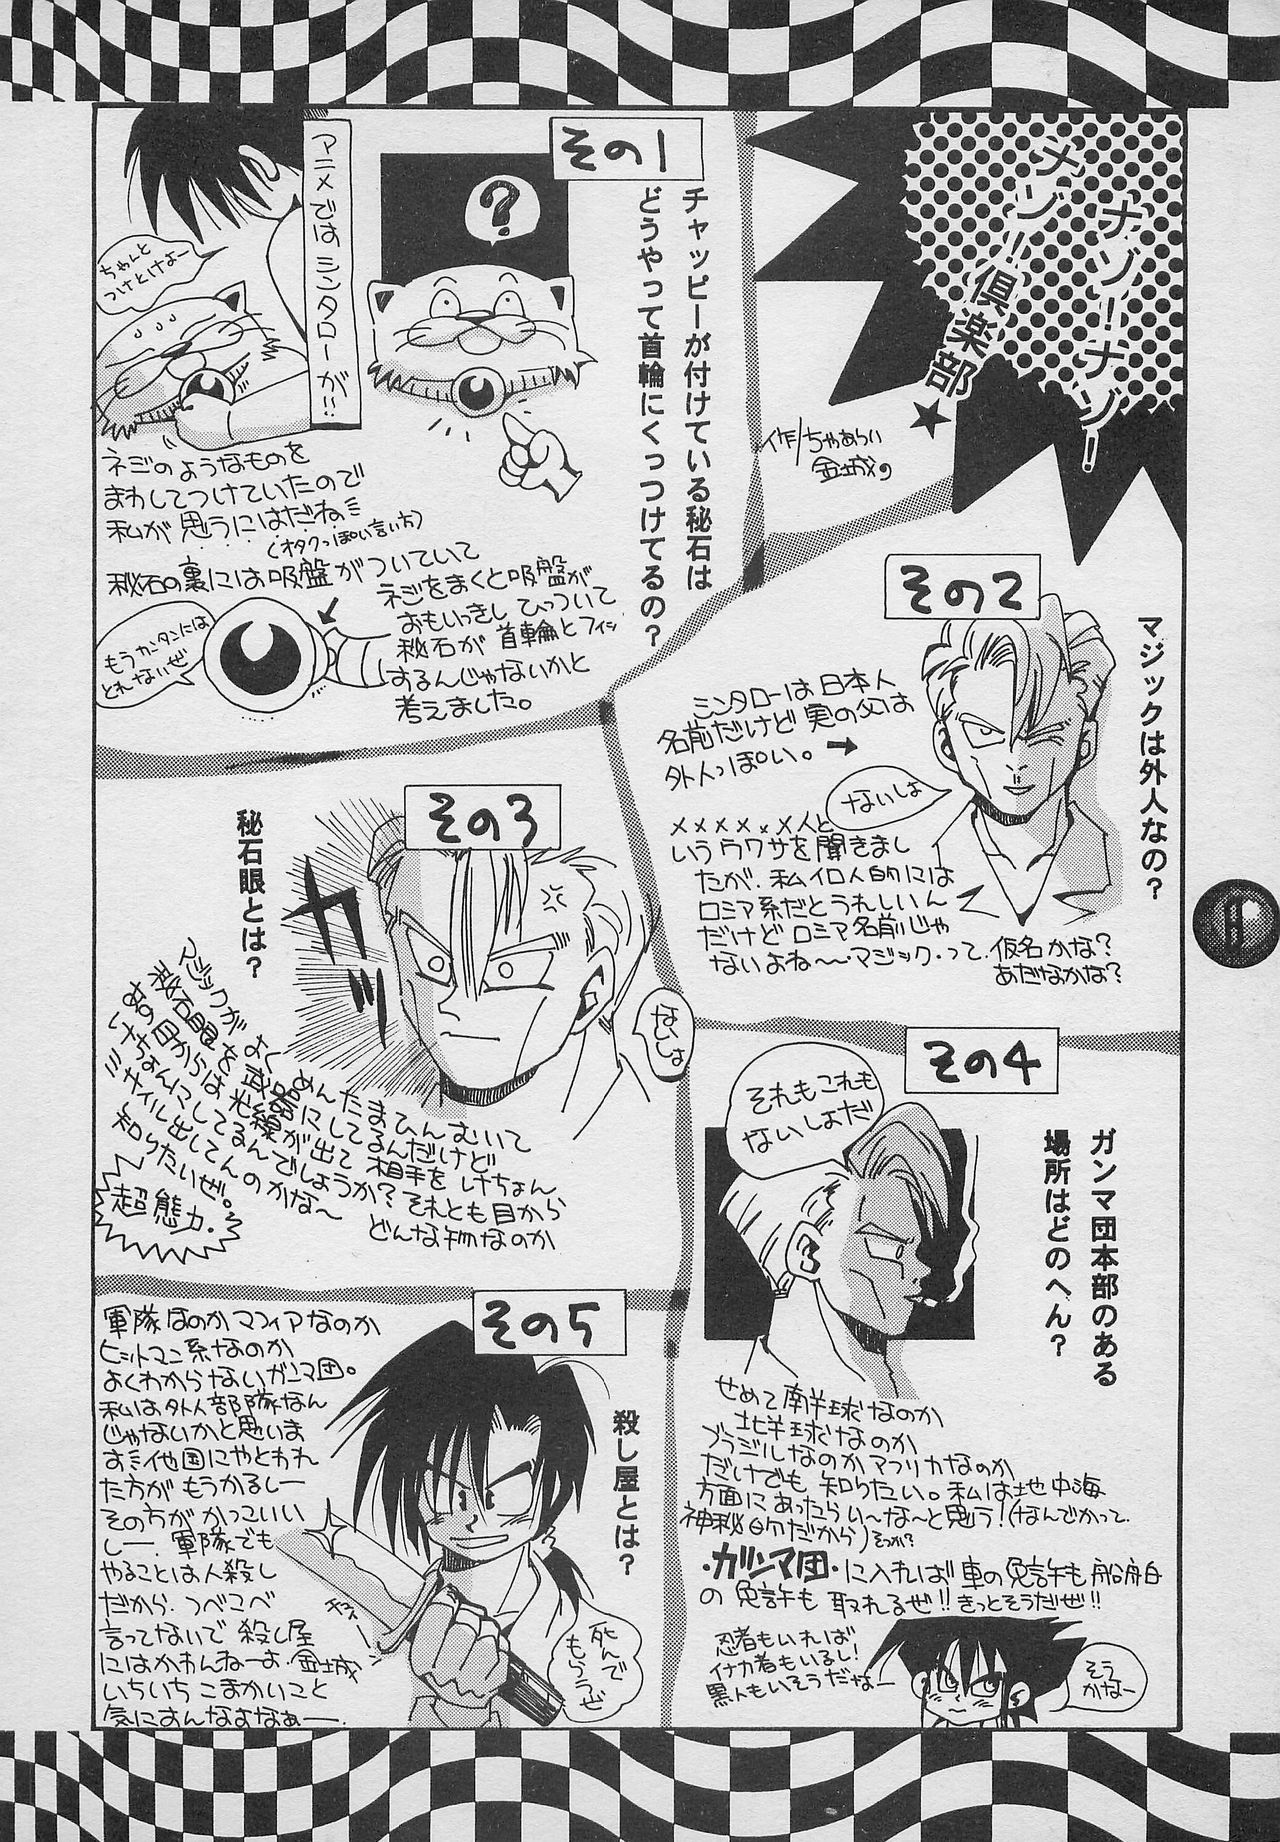 ナゾ!ナゾ!
ナゾ!!倶楽部★
作/ちゃあらい
金城。
その1
チャッピーが付けている秘石は
どうやって首輪にくっつけてるの?
?
アニメではシンタローが!!
ちゃんと
つけとけよー
ネジのようなものを
まわしてつけていたので
私が思うにはだねミ
(オタクっぽい言い方)
秘石の裏には吸盤がついていて
ネジをまくと吸盤が
おもいっきしひっついて
秘石が首輪とフィッ
するんじゃないかと
考えました。
もうカンタンには
とれないぜ
その2
マジックは外人なの?
シンタローは日本人
名前だけど実の父は
外人っぽい。→
ないしょ
××××××人と
いうウワサを聞きまし
たが、私イロ人的には
ロシア系だとうれしいん
だけどロシア名前じゃ
ないよね〜・マジック・って、仮名かな?
あだなかな?
その3
秘石眼とは?
カッ
ないしょ
マジックがよくめんたまひんむいて
秘石眼を武器にしてるんだけど
あの目からは光線が出て相手をけちょん
けちょんにしてるんでしょうか?それとも目から
ミサイル出してんのかな〜 どんな物なのか
知りたいぜ。
超態力.
その4
ガンマ団本部のある
場所はどのへん?
それもこれも
ないしょだ
せめて南半球なのか
北半球なのか
ブラジルなのかアフリカなのか
だけでも知りたい。私は地中海
方面にあったらい〜な〜と思う!(なんでかって、
神秘的だから)そっか?
・ガンマ団・に入れば車の免許も船舶
の免許も取れるぜ!!きっとそうだぜ!!
忍者もいれば
イナカ者もいるし!
黒人もいそうだなー
そう
かなー
その5
殺し屋とは?
軍隊なのかマフィアなのか
ヒットマン系なのか
よくわからないガンマ団。
私は外人部隊なん
じゃないかと思いま
すミ他国にやとわれ
た方がもうかるしー
その方がかっこいい
しー、軍隊でも
やることは人殺し
だから、つべこべ
言ってないで殺し屋
にはかわんねーよ、金城
いちいちこまかいこと
気にすんなよなぁー.
チャキーン
死んで
もらうぜ